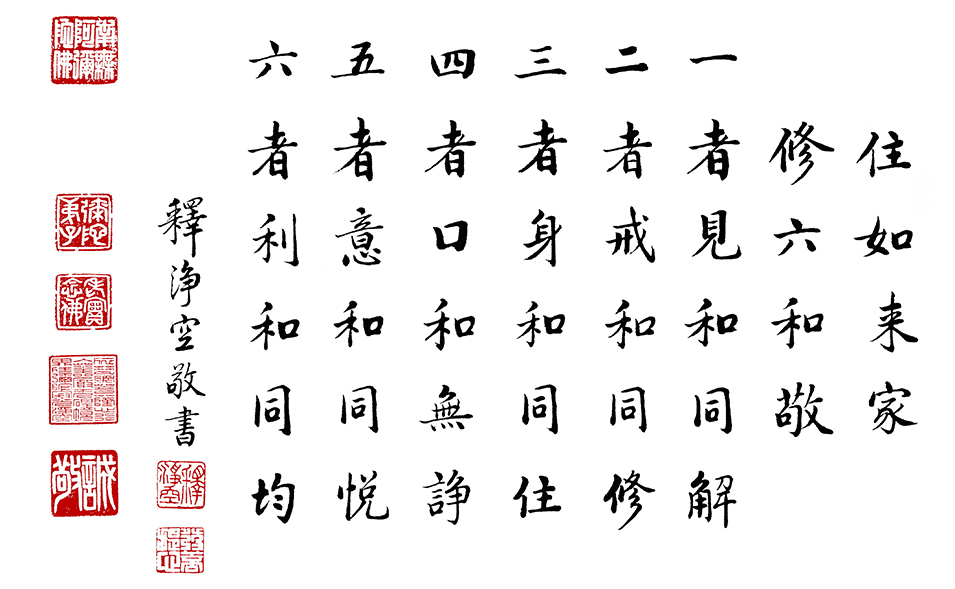 住如来家
修六和敬
一者見和同解
二者戒和同修
三者身和同住
四者口和無諍
五者意和同悦
六者利和同均
釋淨空敬書
南無阿彌陀佛
誠敬